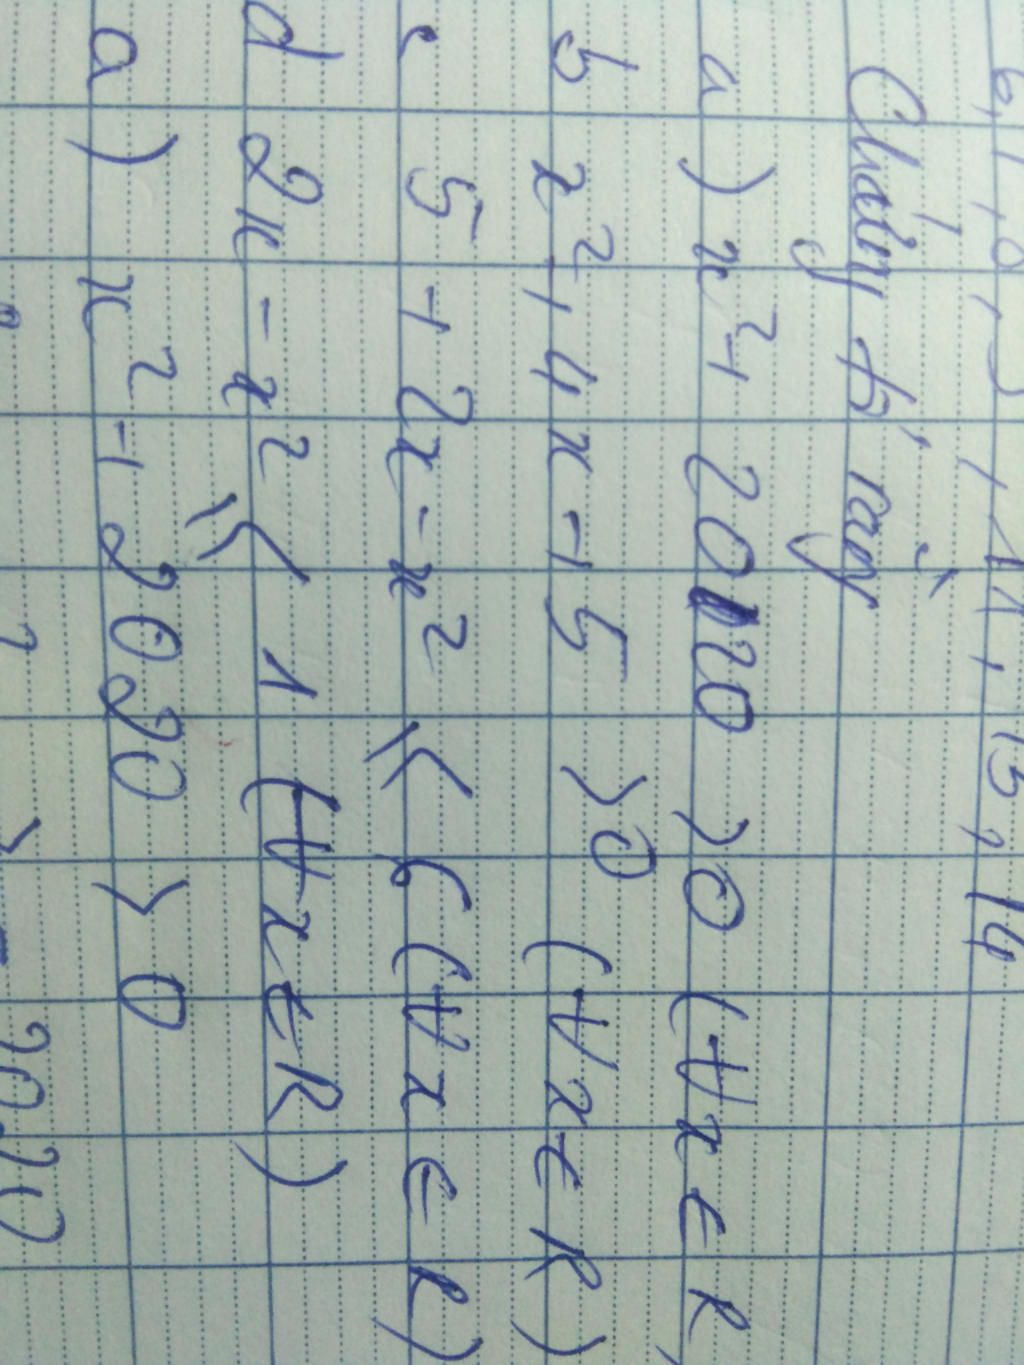 Chứng tỏ rằng
a) x² + 2020 > 0 (∀x ∈ R
b x² + 4x + 5 > 0 (∀x ∈ R)
c 5 + 2x - x² ≤ 6 (∀x ∈ R)
d 2x - x² ≤ 1 (∀x ∈ R)
a) x² + 2020 > 0